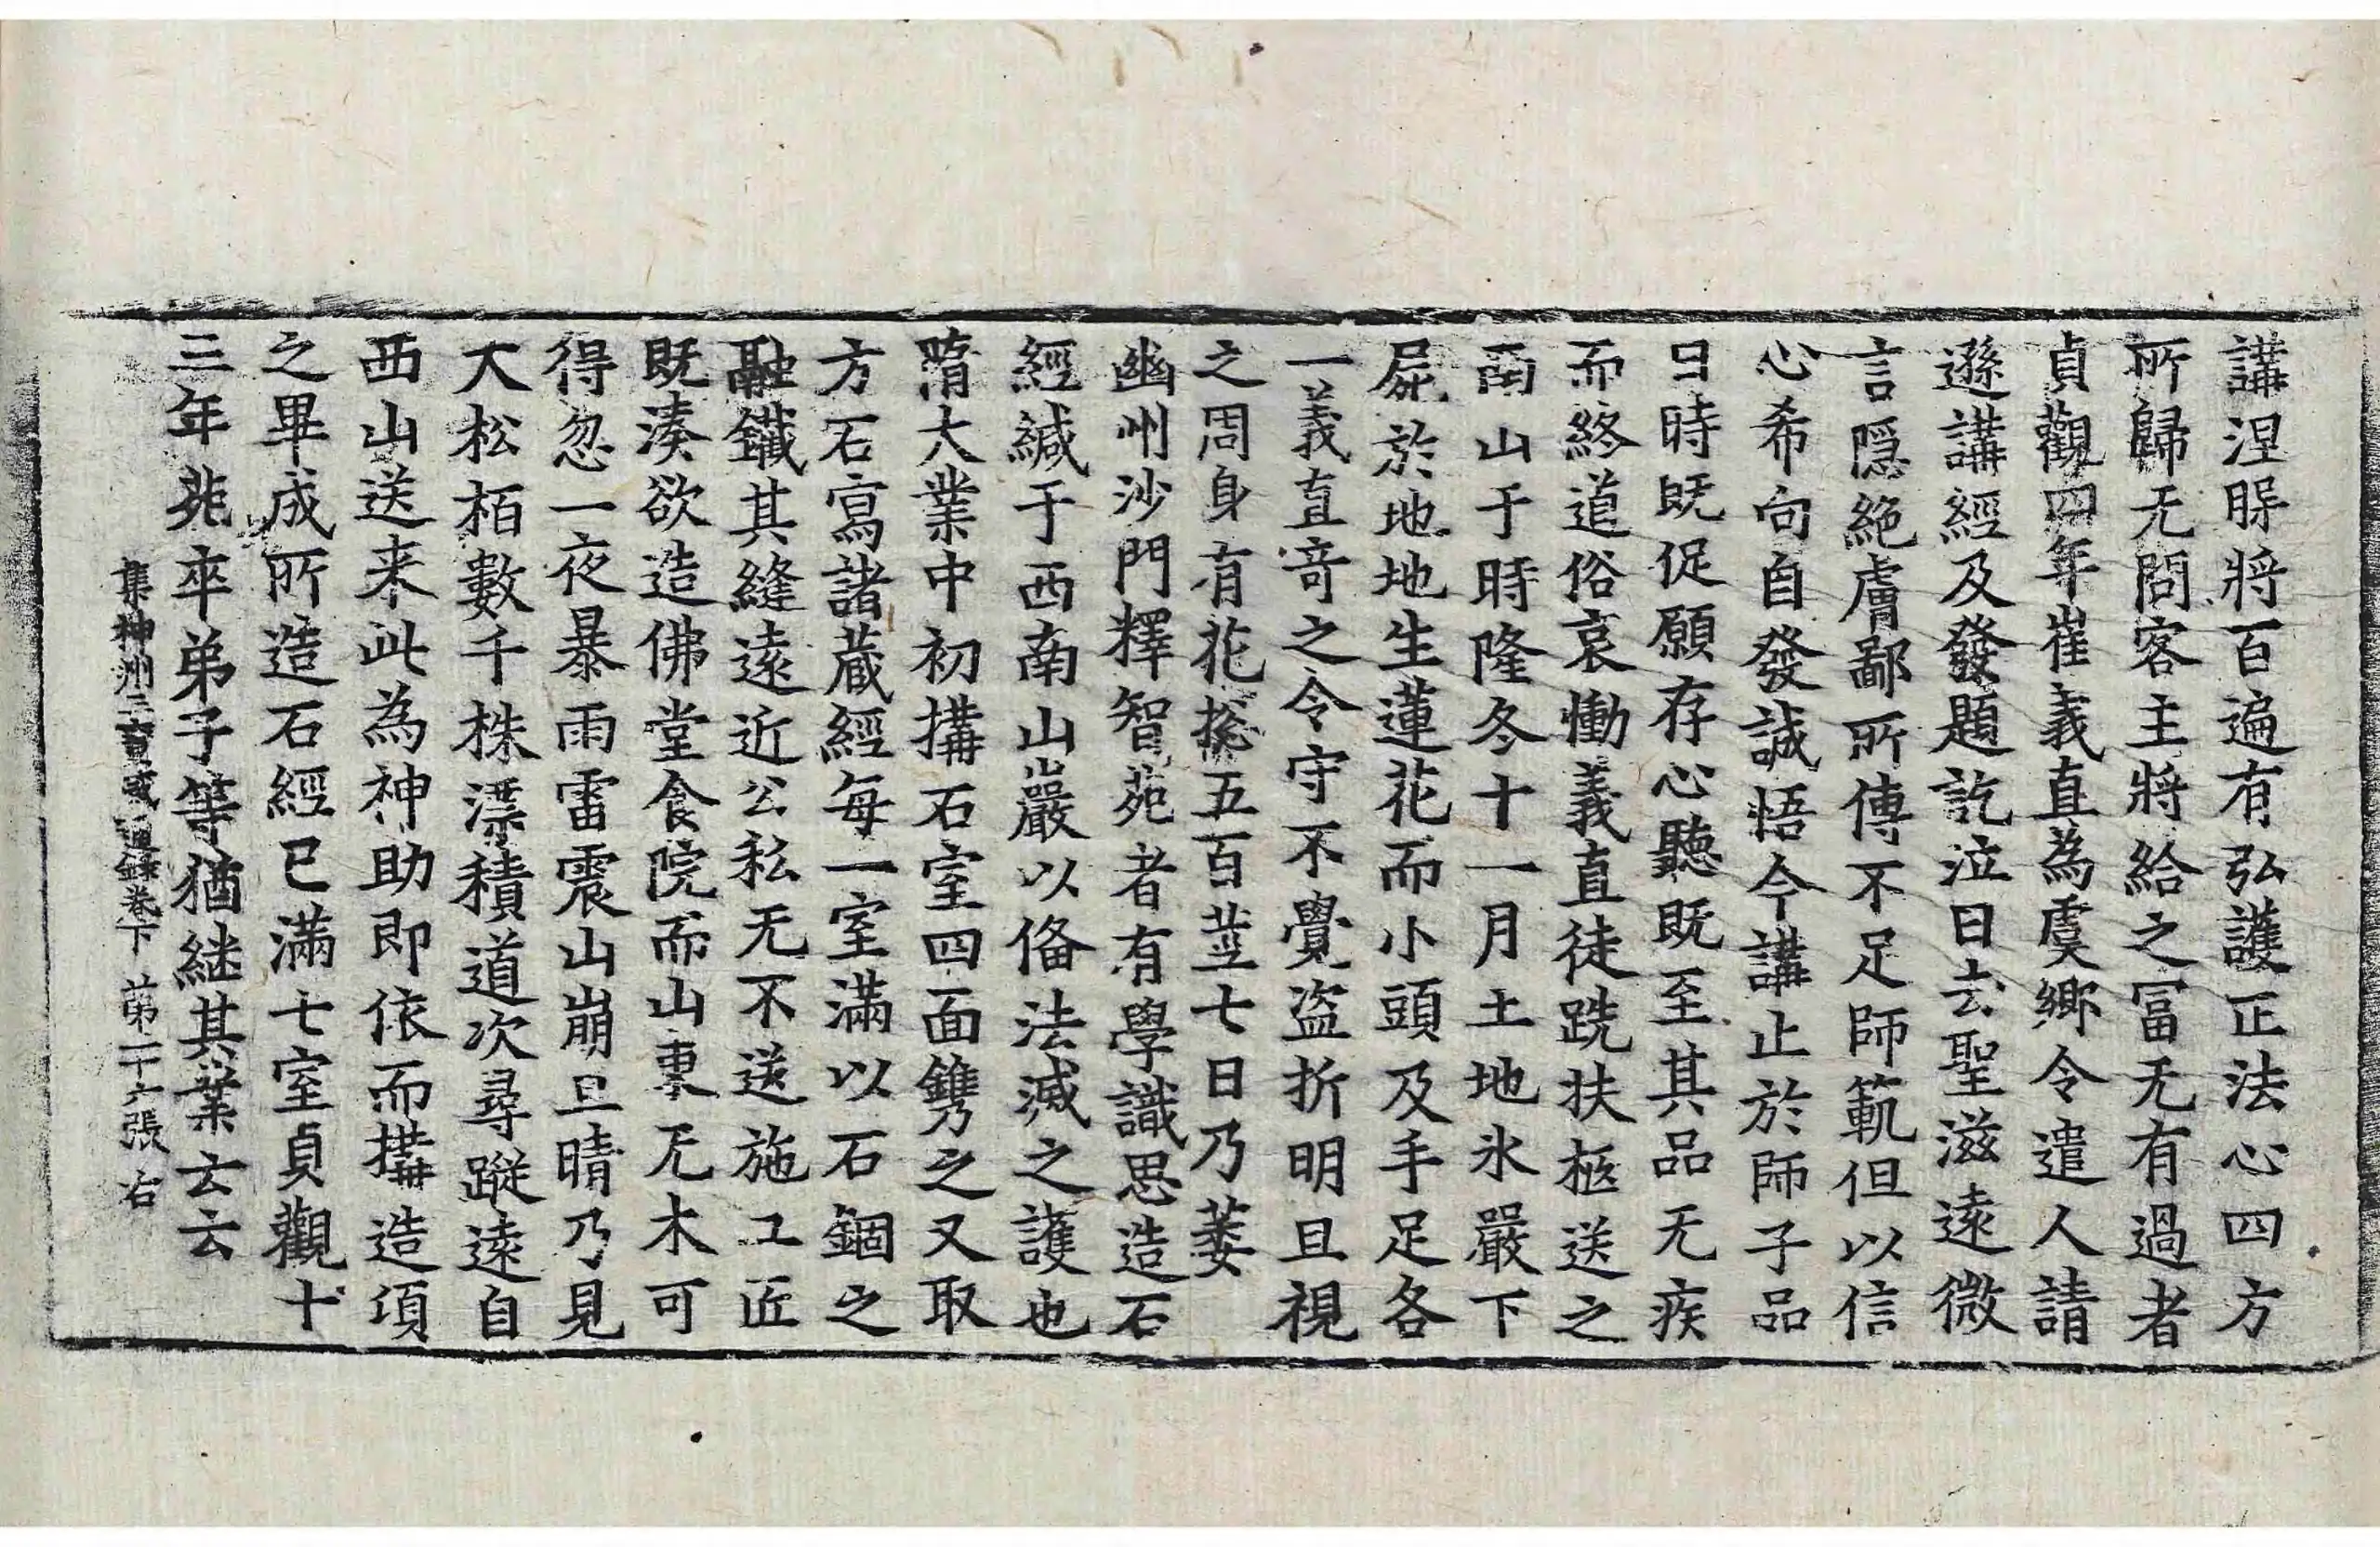 講涅槃將百遍有弘護正法心四方
所歸无問客主將給之冨无有過者
貞觀四年崔義直為虞鄉令遣人請
遜講經及發題訖泣曰去聖滋遠微
言隱絶膚鄙所傳不足師範但以信
心希向自發誠悟今講止於師子品
日時既促願存心聽既至其品无疾
而終道俗哀慟義直徒跣扶柩送之
南山于時隆冬十一月土地氷嚴下
屍於地地生蓮花而小頭及手足各
一義直竒之令守不覺盗折明旦視
之周身有花捴五百莖七日乃萎
幽州沙門釋智苑者有學識思造石
經緘于西南山巖以俻法滅之護也
隋大業中初搆石室四面鐫之又取
方石寫諸蔵經每一室滿以石錮之
融鐵其縫逺近公私无不送施工匠
既湊欲造佛堂食院而山東无木可
得忽一夜暴雨雷震山崩旦晴乃見
大松栢數千株漂積道次尋蹤逺自
西山送来此為神助即依而搆造項
之畢成所造石經已滿七室貞觀十
三年苑卒弟子等猶継其業云云
集神州三寶感通錄卷下 第二十六張 右